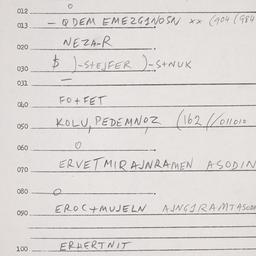 012 o
013 - QDEM EMEZG1NOSN xx (904 (984
020 NEZA-R
030 $ )-S+EJFER )-S+NUK
031 —
040 FO+FET
050 KOLU, PEDEMNOZ (162 //011010
060 o
070 ERVETMIRAJNRAMEN ASODIN
080 o
090 EROC+MUJELN AJNGJRAMTASODA
100 ERHERTNIT